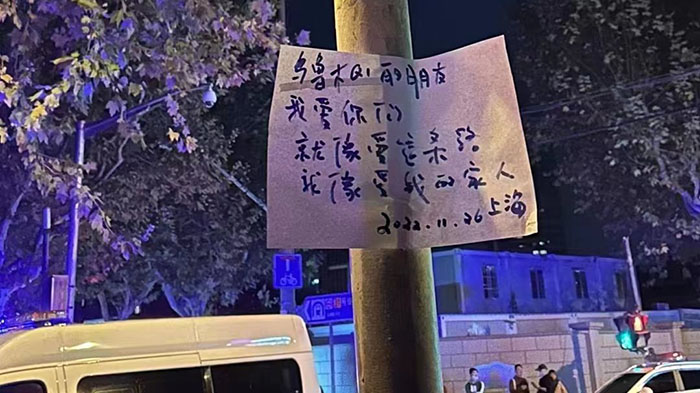 乌鲁木QI的朋友
我爱你们
就像爱这条路
就像爱我的家人
2022.11.26 上海